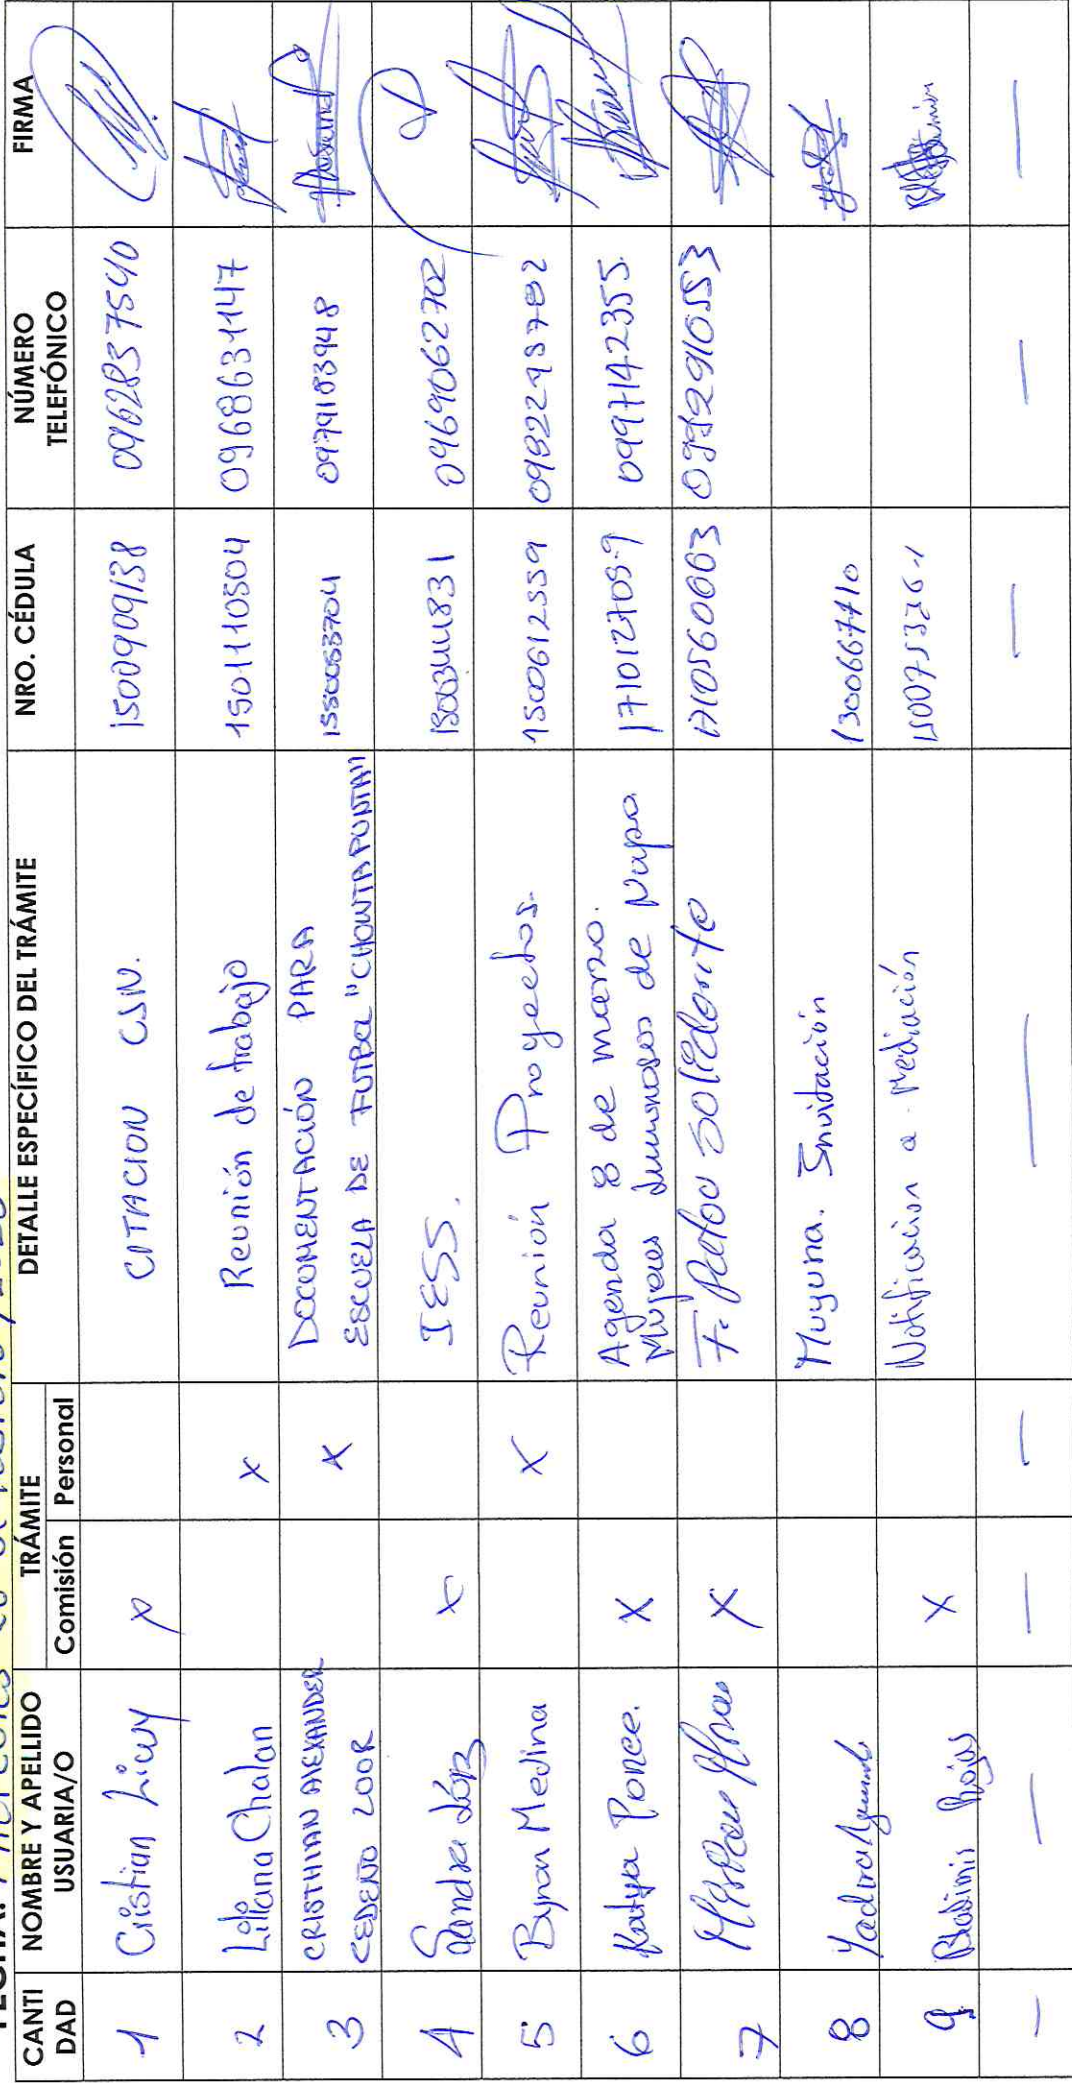 CANTI DAD | NOMBRE Y APELLIDO USUARIA/O | TRÁMITE Comisión | Personal | DETALLE ESPECÍFICO DEL TRÁMITE | NRO. CÉDULA | NÚMERO TELEFÓNICO | FIRMA
1 | Cristian Licuy | x | CITACION CJN. | 1500909138 | 0962837540
2 | Liliana Chalan | x | Reunión de trabajo | 1501110504 | 0968631147
3 | CRISTHIAN ALEXANDER CEDEÑO LOOR | x | DOCUMENTACIÓN PARA
ESCUELA DE FUTBOL "CHONTAPUNTA" | 1550053704 | 0979183948
4 | Sandra López | x | IESS. | 0969062702
5 | Byron Medina | x | Reunión Proyectos. | 1500612559 | 0982298782
6 | Katya Ponce. | x | Agenda 8 de marzo.
Mujeres Luminosas de Napo | 171012709-9 | 0997142355.
7 | x | F. Patou Solidario | 1710560063 | 0992910553
8 | Yadira | Muyuna. Invitación | 1300667710
9 | Bladimir Rojas | x | Notificacion a Mediación | 150075326-1